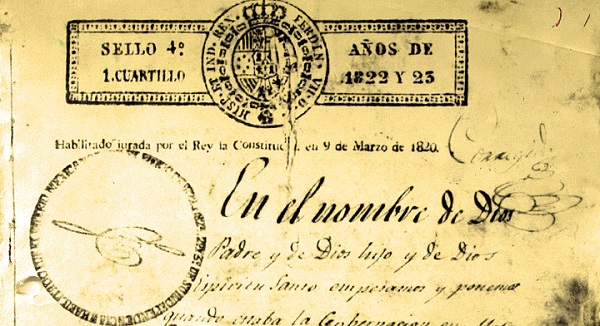 SELLO 4º
1.CUARTILLO
HISP. ET IND. REX. FERDIN. VII.
AÑOS DE
1822 Y 23
Habilitado jurada por el Rey la Constituc en 9 de Marzo de 1820.
En el nombre de Dios
Padre y de Dios hijo y de Dios
Spiritu Santo empesamos y ponemos
quando estaba la Gobernacion en
HABILITADO POR EL INDEPENDENCIA